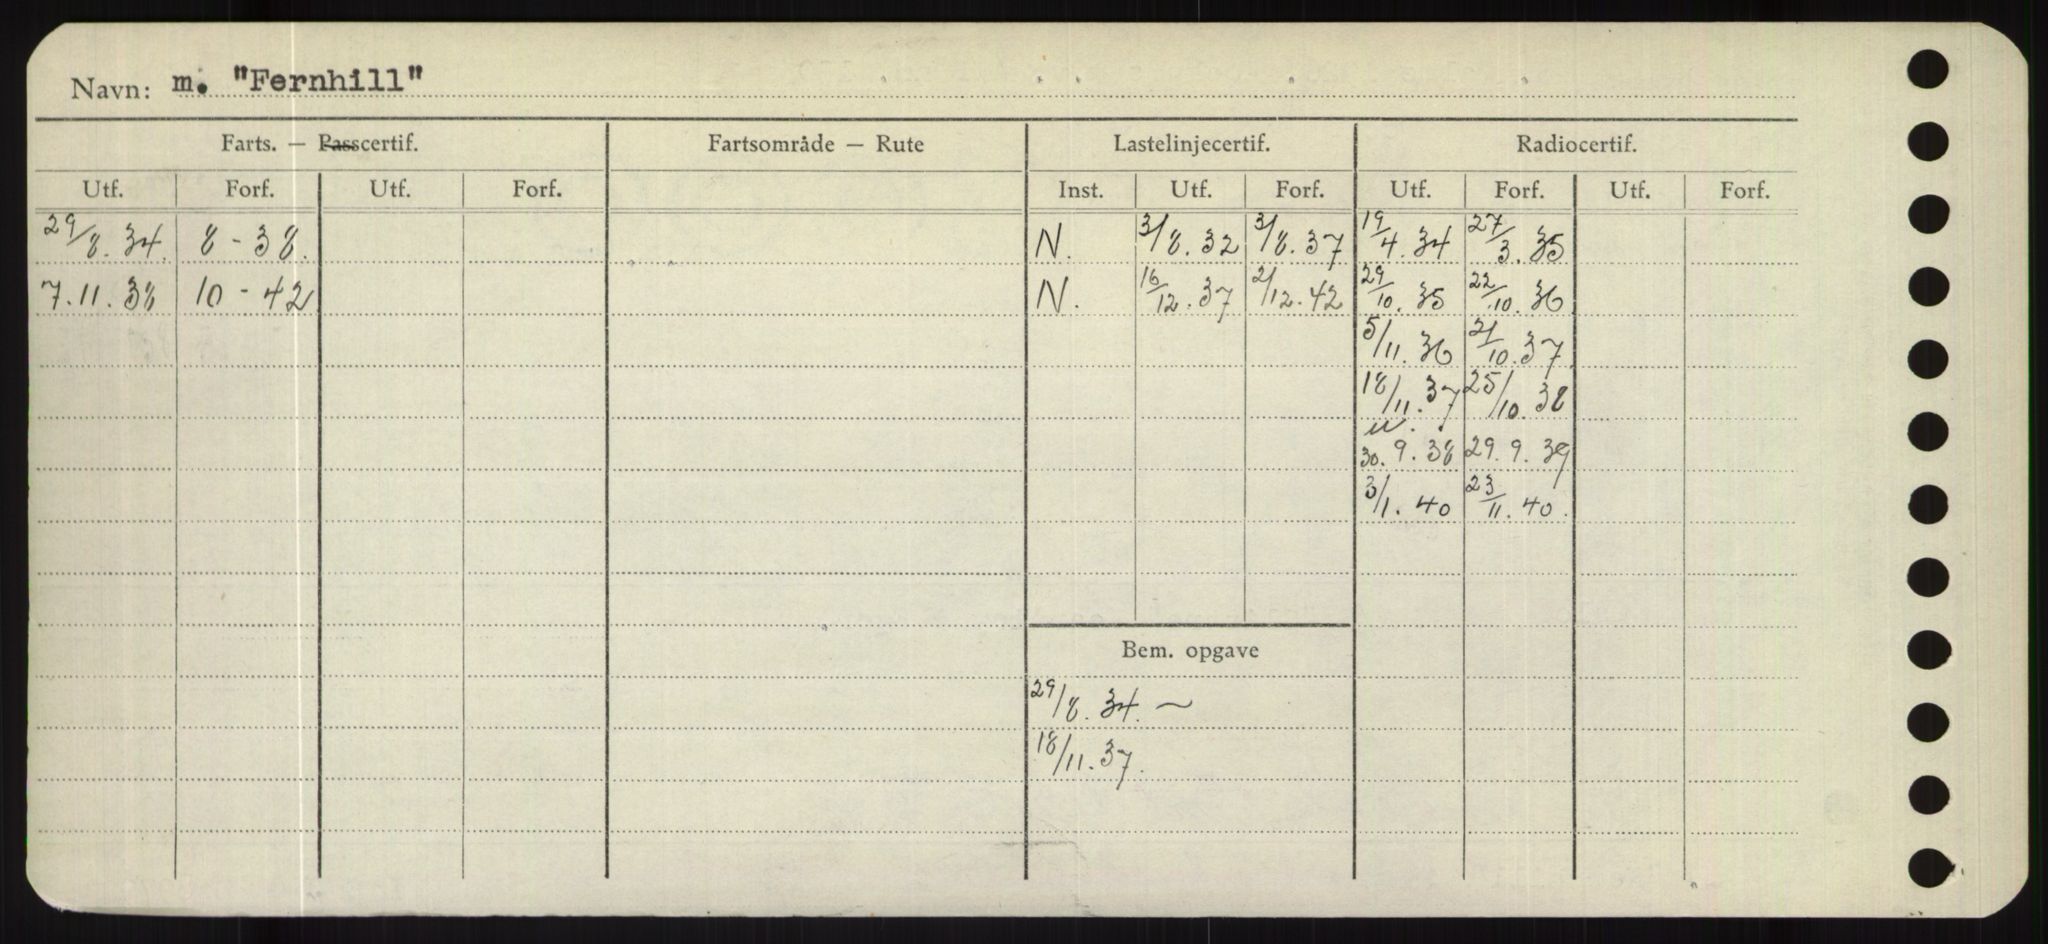 Navn: m. "Fernhill"
Farts. — Passcertif. Fartsområde — Rute Lastelinjecertif. Radiocertif.
Utf. Forf. Utf. Forf. Inst. Utf. Forf. Utf. Forf. Utf. Forf.
29/8.34. 8-38. N. 3/8.32 3/8.37 19/4.34 27/3.35
7.11.38 10-42 N. 16/12.37 2/12.42 29/10.35 22/10.36
5/11.36 21/10.37
18/11.37 25/10.38
30.9.38 29.9.39
3/1.40 23/11.40.
Bem. opgave
29/8.34. ~
18/11.37.